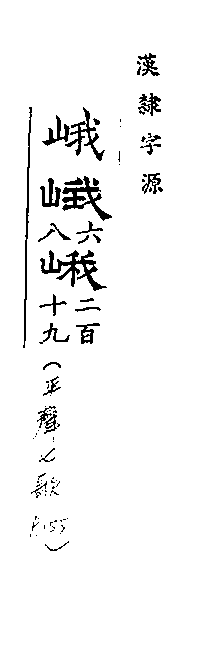 漢隸字源
峨
峨 六八
峨 二百十九
(平聲 歌 P.155)